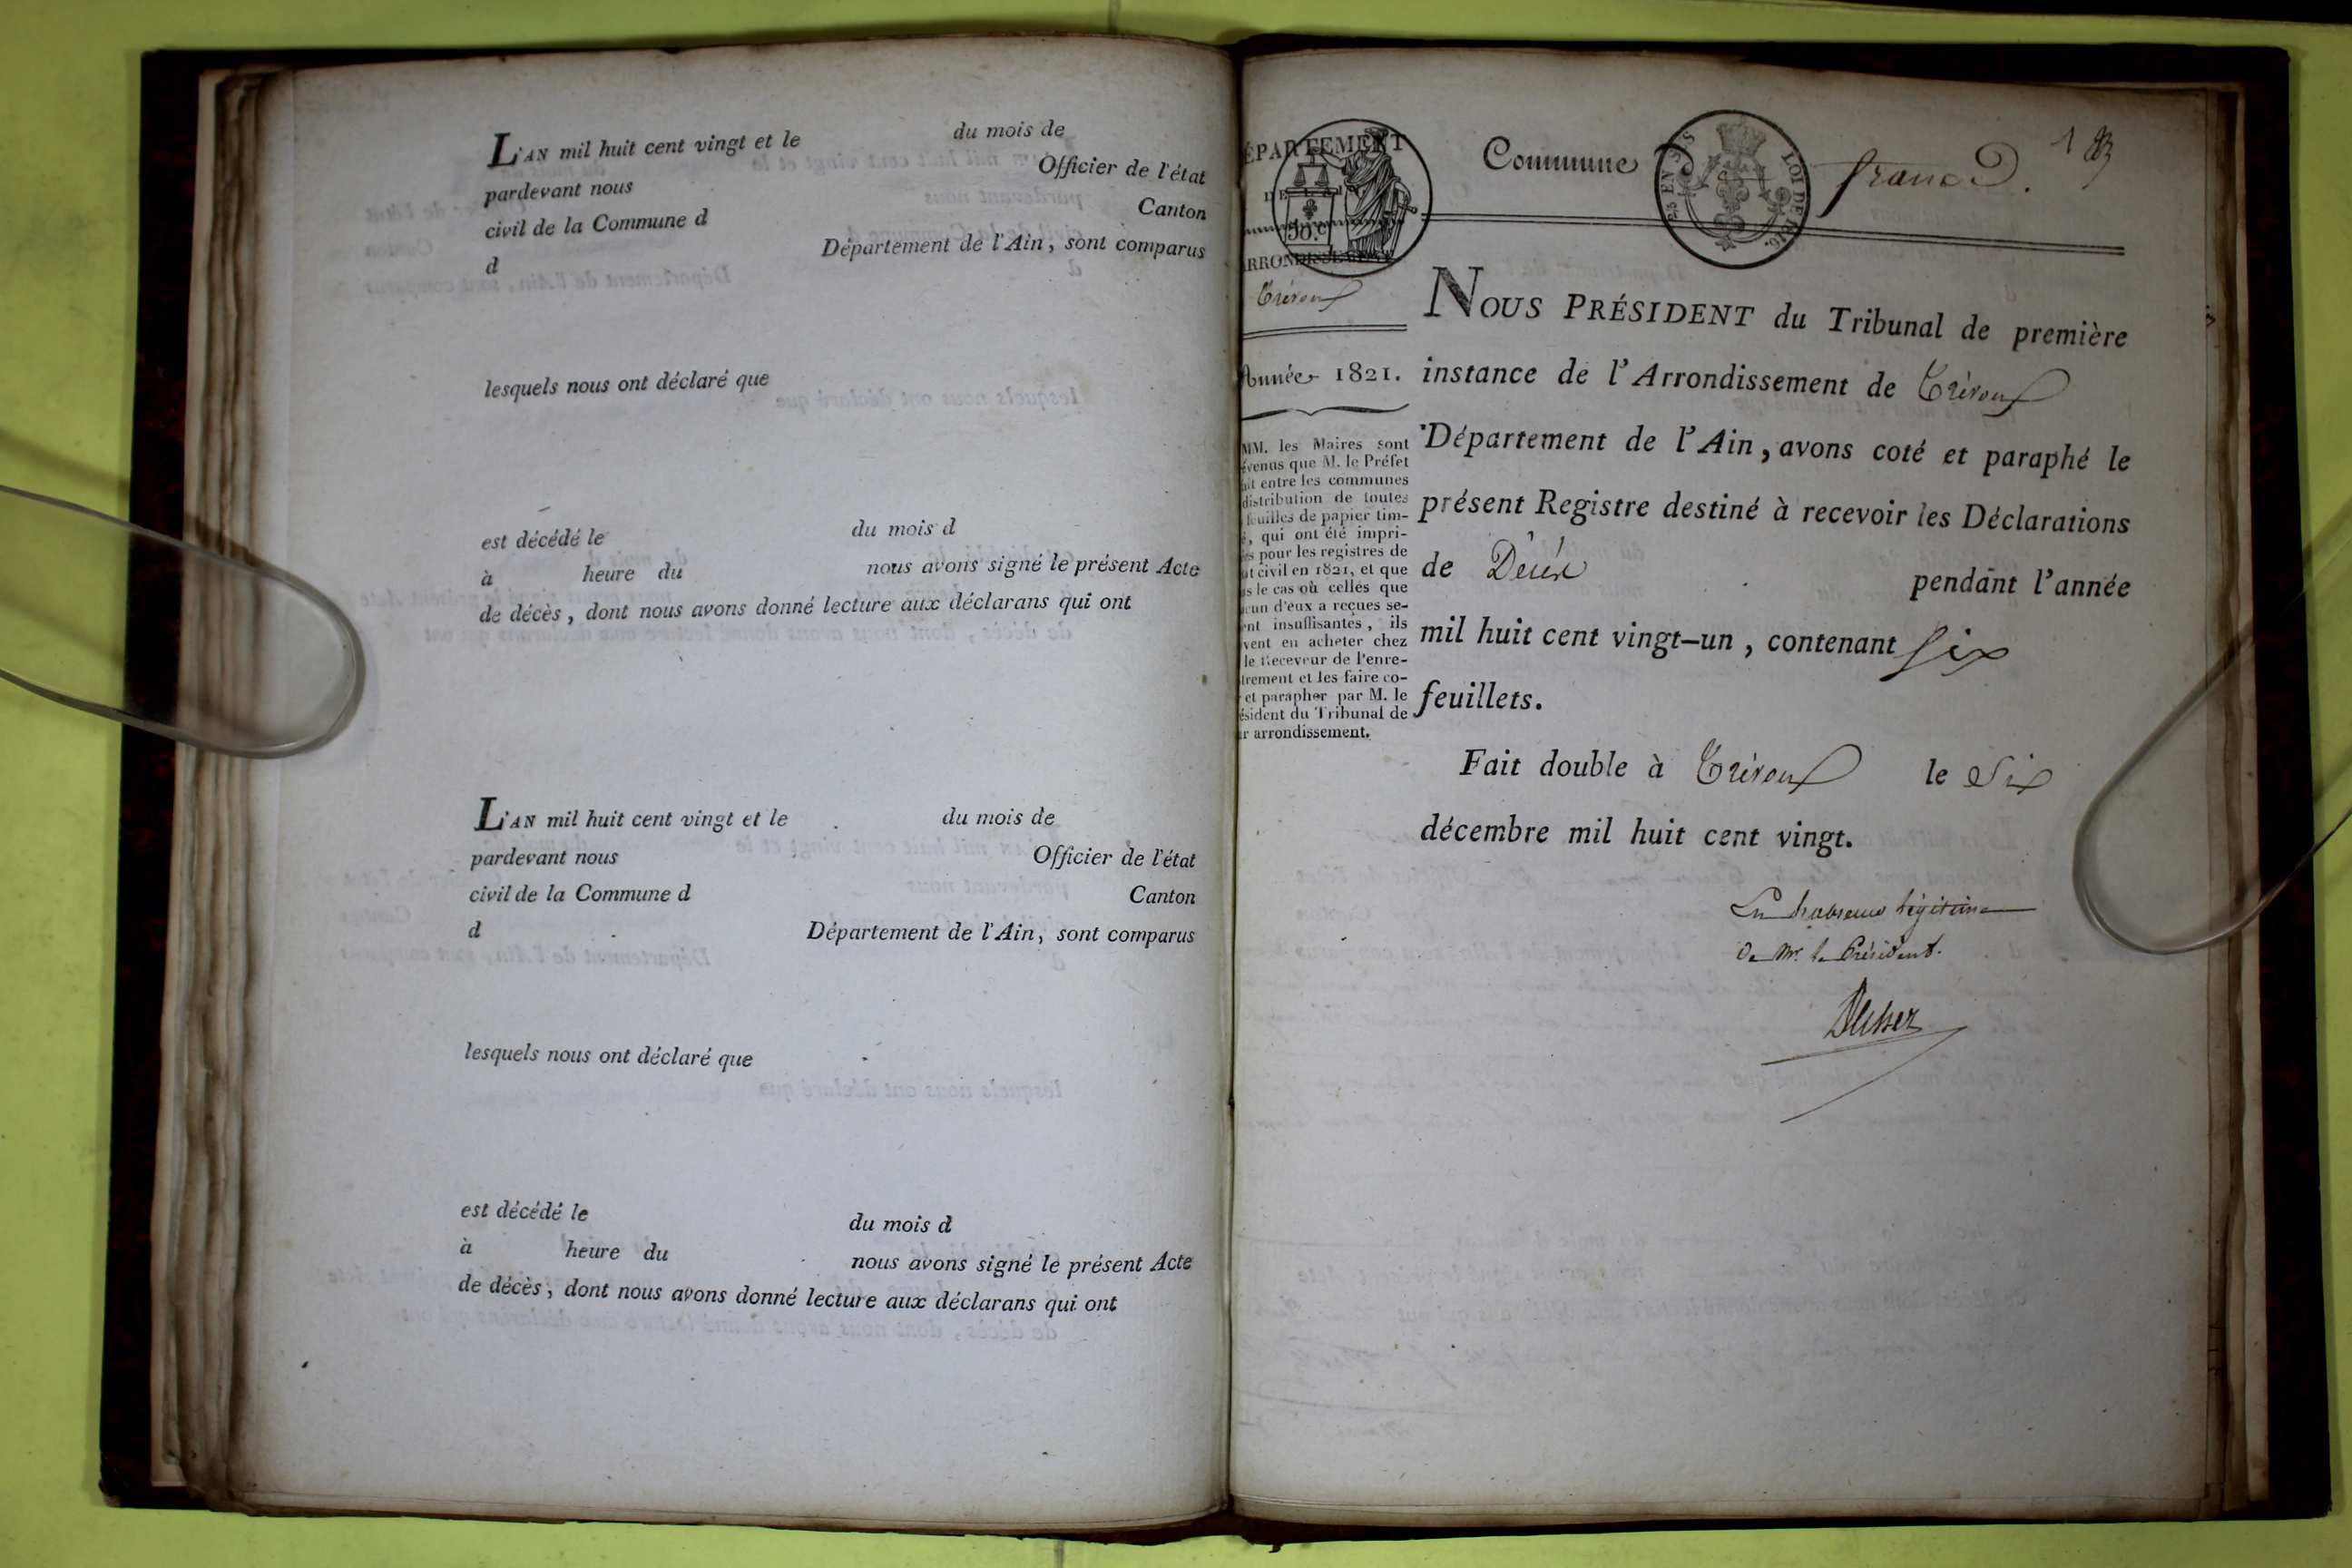 L'AN mil huit cent vingt et le du mois de
pardevant nous Officier de l'état
civil de la Commune d Canton
d Département de l'Ain, sont comparus
lesquels nous ont déclaré que
est décédé le du mois d
à heure du nous avons signé le présent Acte
de décès, dont nous avons donné lecture aux déclarans qui ont
L'AN mil huit cent vingt et le du mois de
pardevant nous Officier de l'état
civil de la Commune d Canton
d Département de l'Ain, sont comparus
lesquels nous ont déclaré que
est décédé le du mois d
à heure du nous avons signé le présent Acte
de décès, dont nous avons donné lecture aux déclarans qui ont
ÉPARTEMENT
DE L'AIN
50.c
ARRONDISSEMENT
Trévoux
Année 1821.
MM. les Maires sont
évenus que M. le Préfet
ait entre les communes
distribution de toutes
feuilles de papier tim-
é, qui ont été impri-
es pour les registres de
at civil en 1821, et que
s le cas où celles que
cun d'eux a reçues se-
ent insuffisantes, ils
vent en acheter chez
le Receveur de l'enre-
trement et les faire co-
et parapher par M. le
ésident du Tribunal de
r arrondissement.
Commune D francs. 1
LOI DE 1816.
NOUS PRÉSIDENT du Tribunal de première
instance de l'Arrondissement de Trévoux
Département de l'Ain, avons coté et paraphé le
présent Registre destiné à recevoir les Déclarations
de Décès pendant l'année
mil huit cent vingt-un, contenant six
feuillets.
Fait double à Trévoux le Six
décembre mil huit cent vingt.
En l'absence légitime
De Mr. le Président.